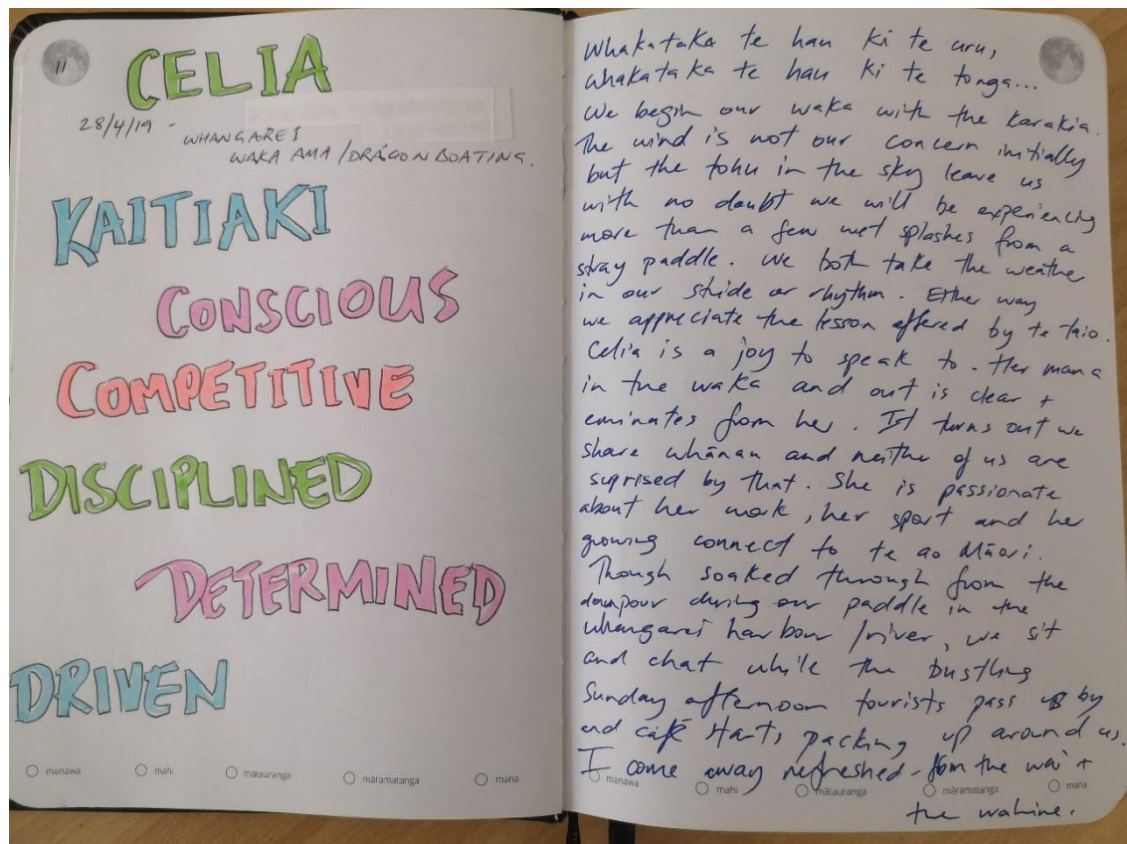 11
CELIA
28/4/19 -
WHANGAREI
WAKA AMA / DRAGON BOATING.
KAITIAKI
CONSCIOUS
COMPETITIVE
DISCIPLINED
DETERMINED
DRIVEN
manawa mahi mātauranga māramatanga mana
Whakataka te hau ki te uru,
whakataka te hau ki te tonga...
We begin our waka with the karakia.
The wind is not our concern initially
but the tohu in the sky leave us
with no doubt we will be experiencing
more than a few wet splashes from a
stray paddle. We both take the weather
in our stride or rhythm. Either way
we appreciate the lesson offered by te taio.
Celia is a joy to speak to. Her mana
in the waka and out is clear +
eminates from her. It turns out we
share whānau and neither of us are
suprised by that. She is passionate
about her work, her sport and her
growing connect to te ao Māori.
Though soaked through from the
downpour during our paddle in the
Whangarei harbour / river, we sit
and chat while the bustling
Sunday afternoon tourists pass us by
and café starts packing up around us.
I come away refreshed - from the wai +
the wahine.
manawa mahi mātauranga māramatanga mana